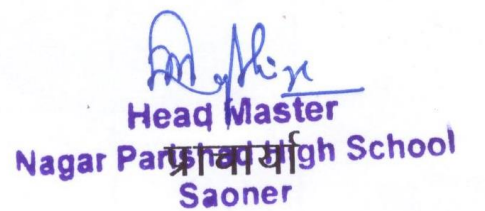 Head Master
Nagar Parishad High School
प्राचार्या
Saoner